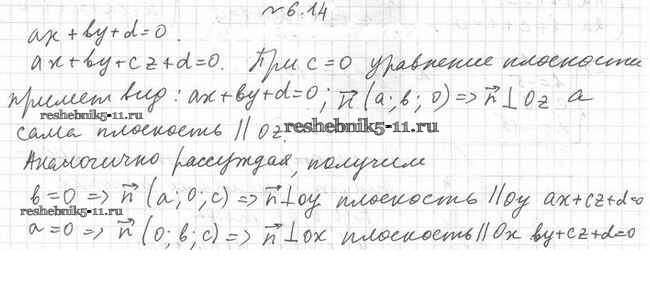 № 6.14
ax + by + d = 0.
ax + by + cz + d = 0. При c = 0 уравнение плоскости
примет вид: ax + by + d = 0; n⃗ (a; b; 0) => n⃗ ⊥ Oz а
reshebnik5-11.ru
сама плоскость || Oz.
reshebnik5-11.ru
Аналогично рассуждая, получим
b = 0 => n⃗ (a; 0; c) => n⃗ ⊥ oy плоскость || oy ax + cz + d = 0
reshebnik5-11.ru
a = 0 => n⃗ (0; b; c) => n⃗ ⊥ ox плоскость || Ox by + cz + d = 0